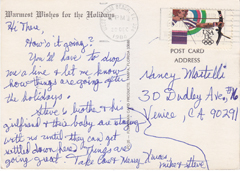 Warmest Wishes for the Holidays
Hi There,
How's it going?
You'll have to drop
me a line & let me know
how things are going after
the holidays.
Steve's brother & his
girlfriend & their baby are staying
with us until they can get
settled down here. Things are
going great. Take Care & Merry Xmas
mike & Steve
USA
POST CARD
ADDRESS
Nancy Martelli
30 Dudley Ave, #16
Venice, CA 90291